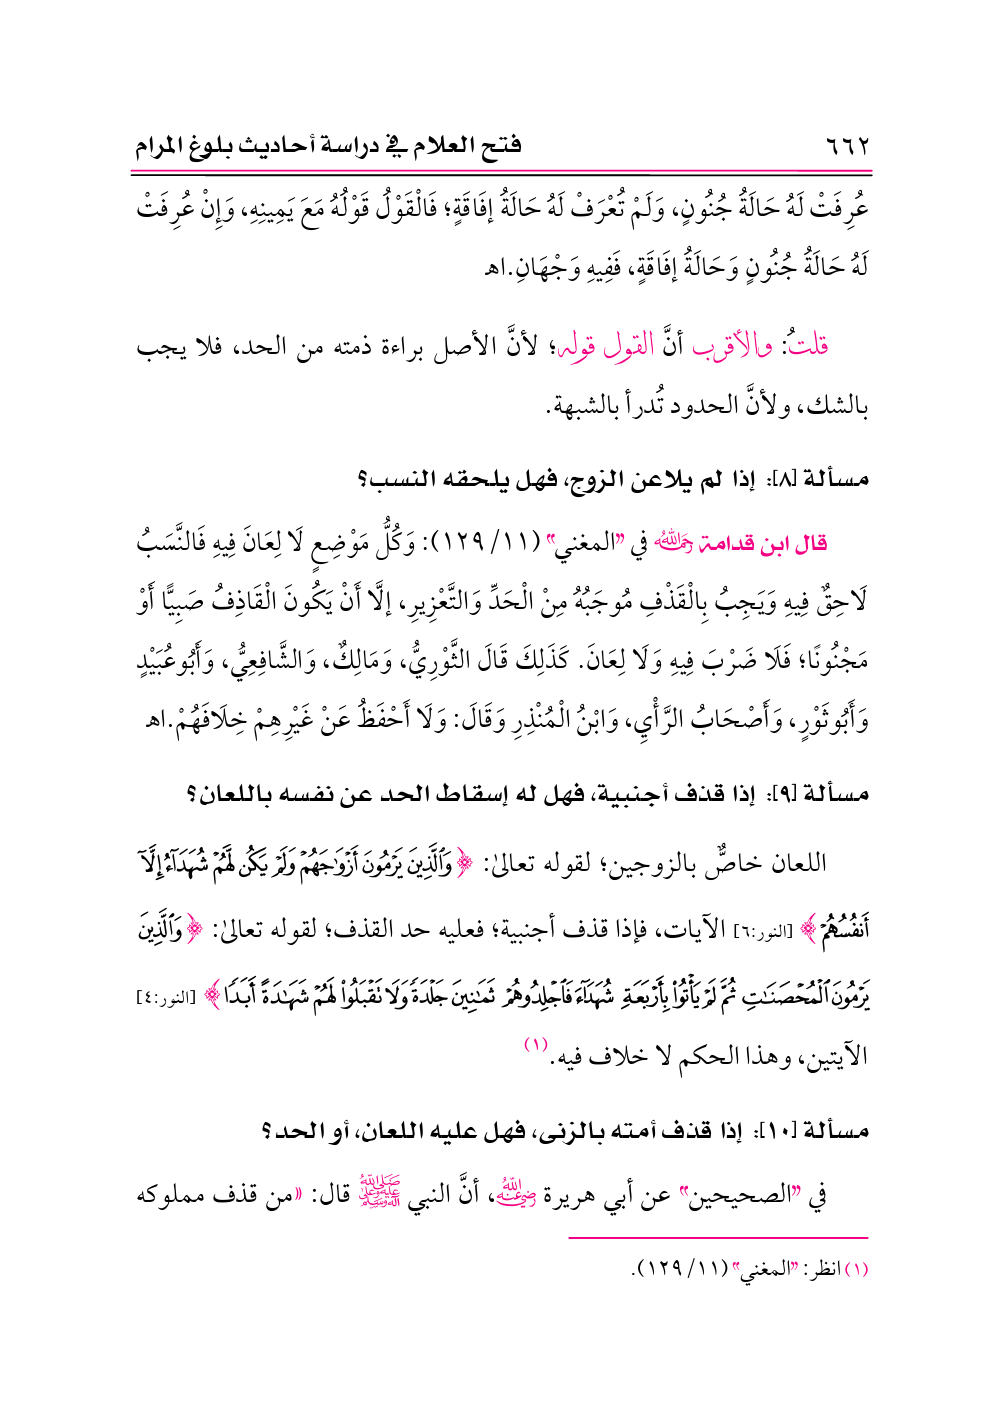 ٦٦٢ فتح العلام في دراسة أحاديث بلوغ المرام
عُرِفَتْ لَهُ حَالَةُ جُنُونٍ، وَلَمْ تُعْرَفْ لَهُ حَالَةُ إفَاقَةٍ؛ فَالْقَوْلُ قَوْلُهُ مَعَ يَمِينِهِ، وَإِنْ عُرِفَتْ
لَهُ حَالَةُ جُنُونٍ وَحَالَةُ إفَاقَةٍ، فَفِيهِ وَجْهَانِ.اهـ
قلتُ: والأقرب أنَّ القول قوله؛ لأنَّ الأصل براءة ذمته من الحد، فلا يجب
بالشك، ولأنَّ الحدود تُدرأ بالشبهة.
مسألة [٨]: إذا لم يلاعن الزوج، فهل يلحقه النسب؟
قال ابن قدامة رحمه الله في "المغني" (١١/ ١٢٩): وَكُلُّ مَوْضِعٍ لَا لِعَانَ فِيهِ فَالنَّسَبُ
لَاحِقٌ فِيهِ وَيَجِبُ بِالْقَذْفِ مُوجَبُهُ مِنْ الْحَدِّ وَالتَّعْزِيرِ، إلَّا أَنْ يَكُونَ الْقَاذِفُ صَبِيًّا أَوْ
مَجْنُونًا؛ فَلَا ضَرْبَ فِيهِ وَلَا لِعَانَ. كَذَلِكَ قَالَ الثَّوْرِيُّ، وَمَالِكٌ، وَالشَّافِعِيُّ، وَأَبُوعُبَيْدٍ
وَأَبُوثَوْرٍ، وَأَصْحَابُ الرَّأْيِ، وَابْنُ الْمُنْذِرِ وَقَالَ: وَلَا أَحْفَظُ عَنْ غَيْرِهِمْ خِلَافَهُمْ.اهـ
مسألة [٩]: إذا قذف أجنبية، فهل له إسقاط الحد عن نفسه باللعان؟
اللعان خاصٌّ بالزوجين؛ لقوله تعالىٰ: ﴿وَٱلَّذِينَ يَرْمُونَ أَزْوَٰجَهُمْ وَلَمْ يَكُن لَّهُمْ شُهَدَآءُ إِلَّآ
أَنفُسُهُمْ﴾ [النور:٦] الآيات، فإذا قذف أجنبية؛ فعليه حد القذف؛ لقوله تعالىٰ: ﴿وَٱلَّذِينَ
يَرْمُونَ ٱلْمُحْصَنَٰتِ ثُمَّ لَمْ يَأْتُوا۟ بِأَرْبَعَةِ شُهَدَآءَ فَٱجْلِدُوهُمْ ثَمَٰنِينَ جَلْدَةً وَلَا تَقْبَلُوا۟ لَهُمْ شَهَٰدَةً أَبَدًا﴾ [النور:٤]
الآيتين، وهذا الحكم لا خلاف فيه.(١)
مسألة [١٠]: إذا قذف أمته بالزنى، فهل عليه اللعان، أو الحد؟
في "الصحيحين" عن أبي هريرة رضي الله عنه، أنَّ النبي ﷺ قال: «من قذف مملوكه
(١) انظر: "المغني" (١١/ ١٢٩).